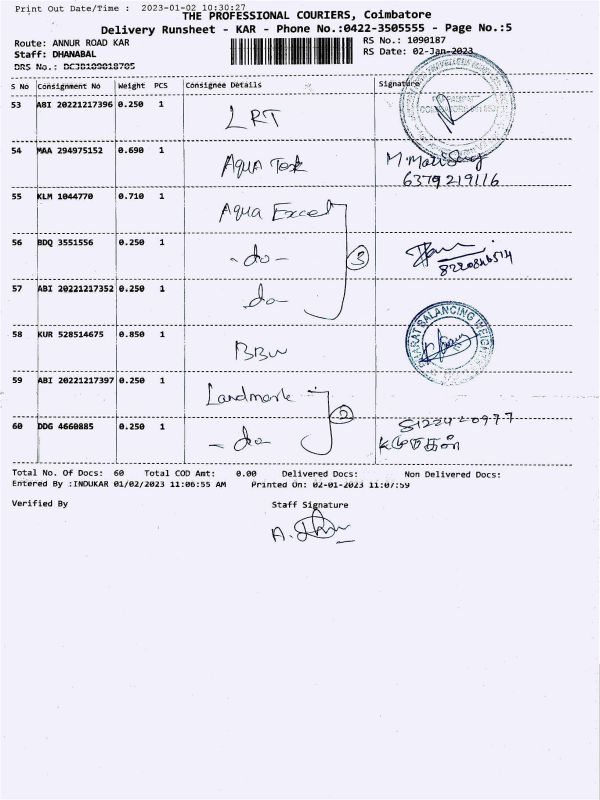 Print Out Date/Time : 2023-01-02 10:30:27
THE PROFESSIONAL COURIERS, Coimbatore
Delivery Runsheet - KAR - Phone No.:0422-3505555 - Page No.:5
Route: ANNUR ROAD KAR
RS No.: 1090187
Staff: DHANABAL
RS Date: 02-Jan-2023
DRS No.:
S No Consignment No Weight PCS Consignee Details Signature
53 ABI 20221217396 0.250 1 LRT
54 MAA 294975152 0.690 1 Aqua Tek M.
6379219116
55 KLM 1044770 0.710 1 Aqua Excel
56 BDQ 3551556 0.250 1 -do- 3
57 ABI 20221217352 0.250 1 do-
58 KUR 528514675 0.850 1 BBW BHARAT BALANCING WEIGHTS
59 ABI 20221217397 0.250 1 Landmark 2
60 DDG 4660885 0.250 1 - do
Total No. Of Docs: 60 Total COD Amt: 0.00 Delivered Docs: Non Delivered Docs:
Entered By :INDUKAR 01/02/2023 11:06:55 AM Printed On: 02-01-2023 11:07:59
Verified By Staff Signature